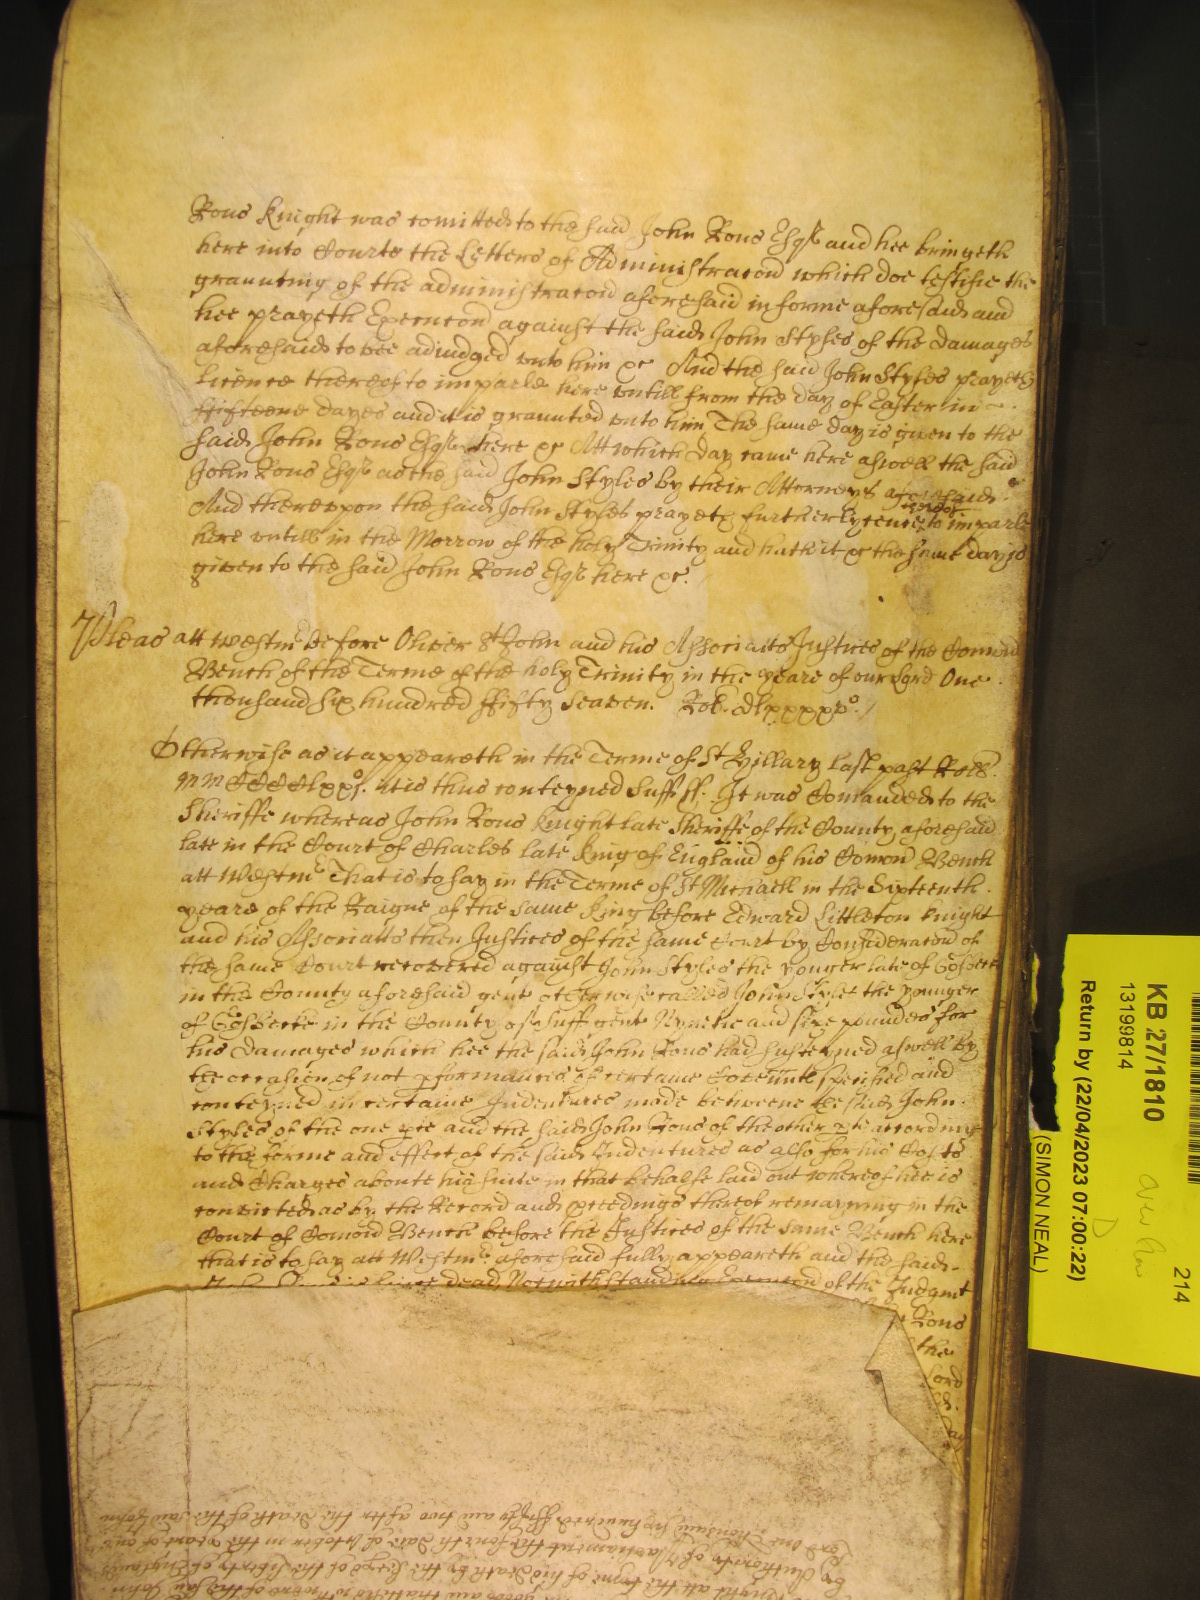 Rous Knight was comitted to the said John Rous Esqr and hee bringeth
here into Courte the Letters of Administracon which doe testifie the
graunting of the administracon aforesaid in forme aforesaid and
hee prayeth Execucon against the said John Styles of the damages
aforesaid to bee adiudged unto him &c And the said John Styles prayeth
licence thereof to imparle here untill from the day of Easter in
fifteene dayes and it is graunted unto him The same day is given to the
said John Rous Esqr here &c Att which day came here aswell the said
John Rous Esqr as the said John Styles by their Attorneys aforesaid
And thereupon the said John Styles prayeth further lycence to imparle
here untill in the Morrow of the holy Trinity and hath it &c the same day is
given to the said John Rous Esqr here &c.
Pleas att Westmr before Oliver St John and his Associatts Justices of the Comon
Bench of the Terme of the holy Trinity in the yeare of our Lord One
thousand six hundred ffifty seaven. Rol.
Otherwise as it appeareth in the Terme of St Hillary last past Roll.
It is thus conteyned Suff ss. It was Comanded to the
Sheriffe whereas John Rous Knight late Sheriffe of the County aforesaid
late in the Court of Charles late King of England of his Comon Bench
att Westmr That is to say in the Terme of St Michaell in the Sixteenth
yeare of the Raigne of the same King before Edward Littleton Knight
and his Associatts then Justices of the same Court by Consideracon of
the same Court recovered against John Styles the yonger late of
in the County aforesaid gent otherwise called John Styles the younger
of in the County of Suff gent Nynetie and sixe pounds for
his damages which hee the said John Rous had susteyned aswell by
the occasion of not pformance of certaine Covennts specified and
conteyned in certaine Indentures made betweene the said John
Styles of the one pte and the said John Rous of the other pte according
to the forme and effect of the said Indentures as also for his Costs
and Charges aboute his suite in that behalfe laid out whereof hee is
convicted as by the Record and pceedings thereof remayning in the
Court of Comon Bench before the Justices of the same Bench here
that is to say att Westmr aforesaid fully appeareth and the said
dead Notwithstanding Execucon of the Judgmt
Rous
the
Lord
KB 27/1810
13199814
Return by (22/04/2023 07:00:22)
(SIMON NEAL)
214
Knight att the tyme of his death by the keepers of the liberty of England
by Authority of Parliament the fourth daie of October in the yeare of our
Lord one thousand six hundred fifty and two after the death of the said John